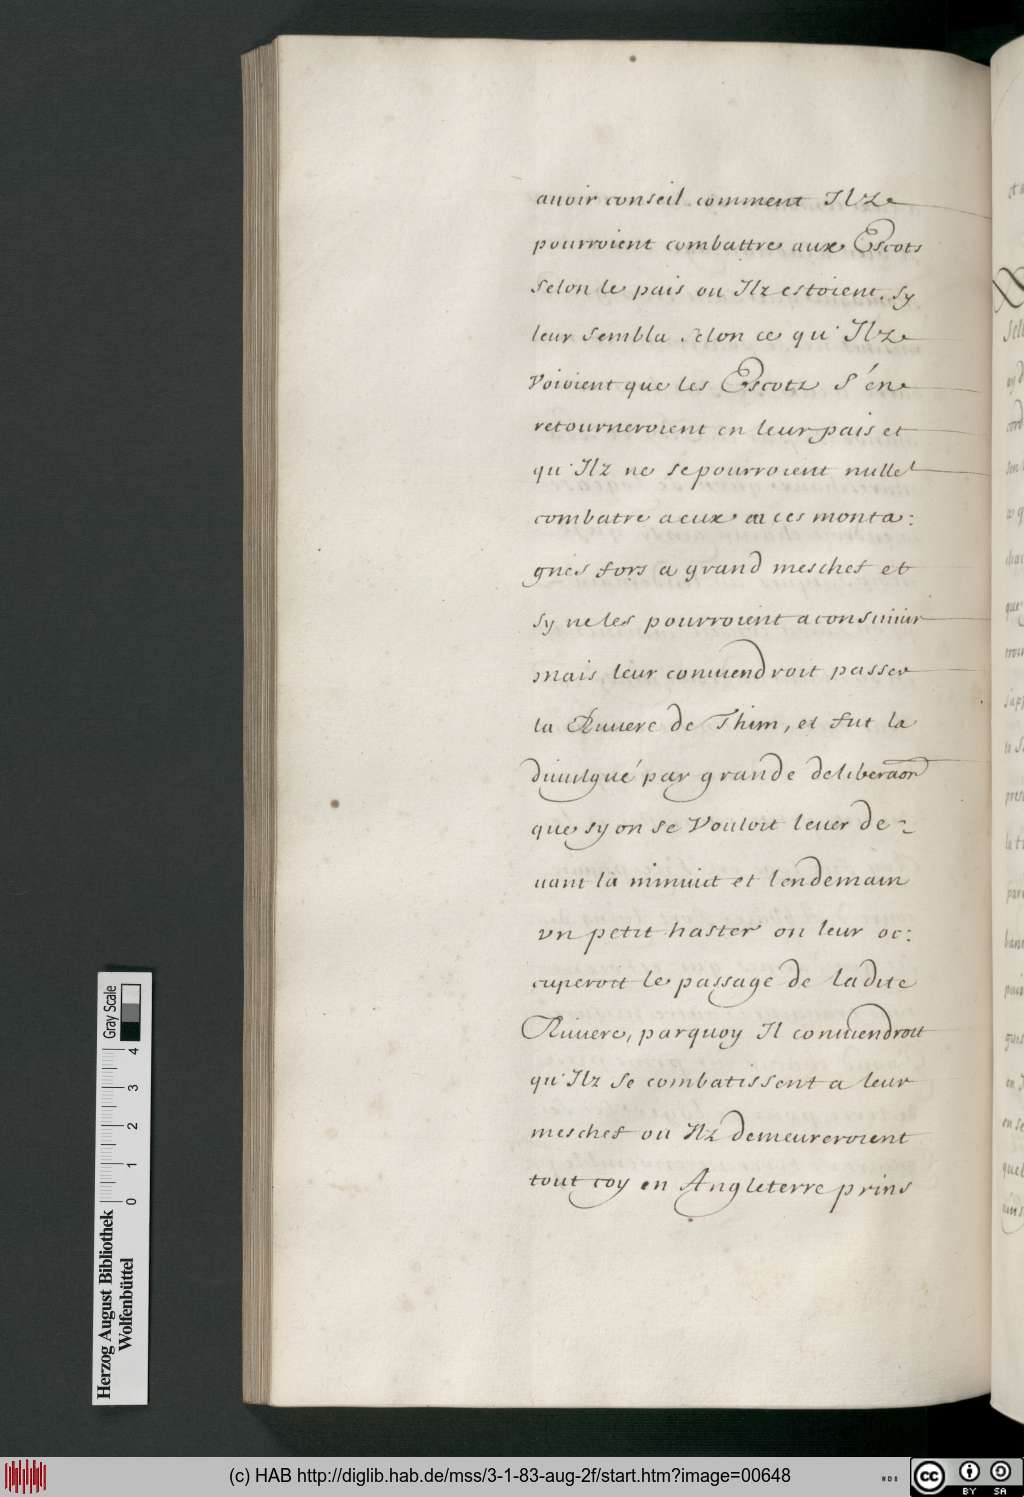 auoir conseil comment Ilz
pourroient combattre aux Escots
selon le pais ou Ilz estoient, sy
leur sembla selon ce qu'Ilz
voioient que les Escotz s'en
retourneroient en leur pais et
qu'Ilz ne se pourroient nullet
combatre a eux en ces monta:
gnes fors a grand meschef et
sy ne les pourroient aconsuiuir
mais leur conuiendroit passer
la Riuiere de Thim, et fut la
diuulgué par grande deliberaon
que sy on se vouloit leuer de-
uant la minuict et lendemain
vn petit haster on leur oc:
cuperoit le passage de ladite
Riuiere, parquoy Il conuiendroit
qu'Ilz se combatissent a leur
meschef ou Ilz demeureroient
tout coy en Angleterre prins
Gray Scale
0 1 2 3 4
Herzog August Bibliothek
Wolfenbüttel
(c) HAB http://diglib.hab.de/mss/3-1-83-aug-2f/start.htm?image=00648
WDB
cc BY SA